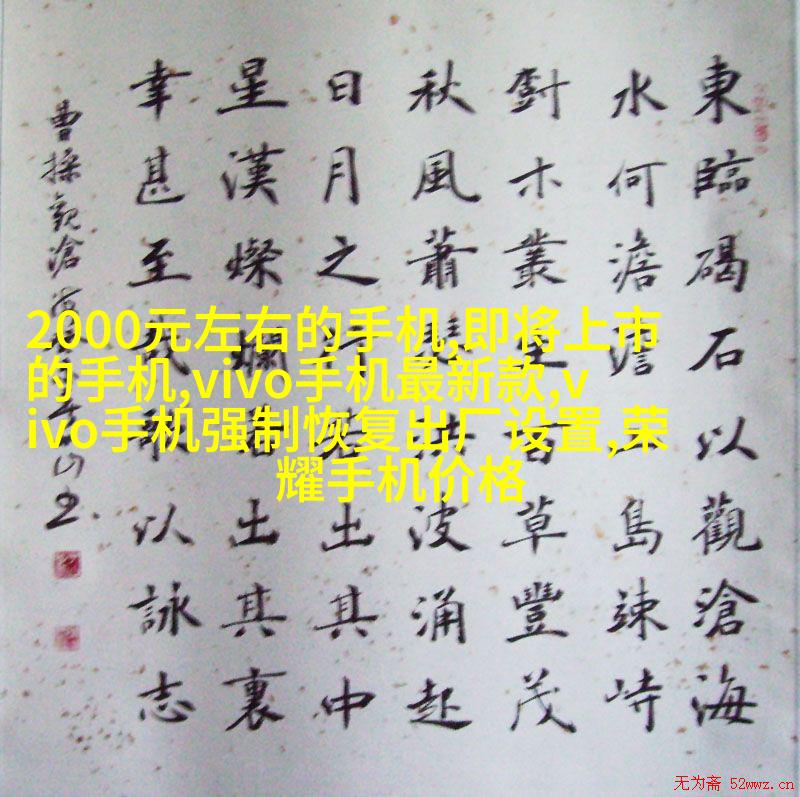 東臨碣石以觀滄海
水何澹澹山島竦峙
尌木叢生百草豐茂
秋風蕭瑟洪波涌起
日月之行若出其中
星漢燦爛若出其裏
幸甚至哉歌以詠志
曹操觀滄海
2000元左右的手机,即将上市
的手机,vivo手机最新款,v
ivo手机强制恢复出厂设置,荣
耀手机价格
无为斋 52wwz.cn